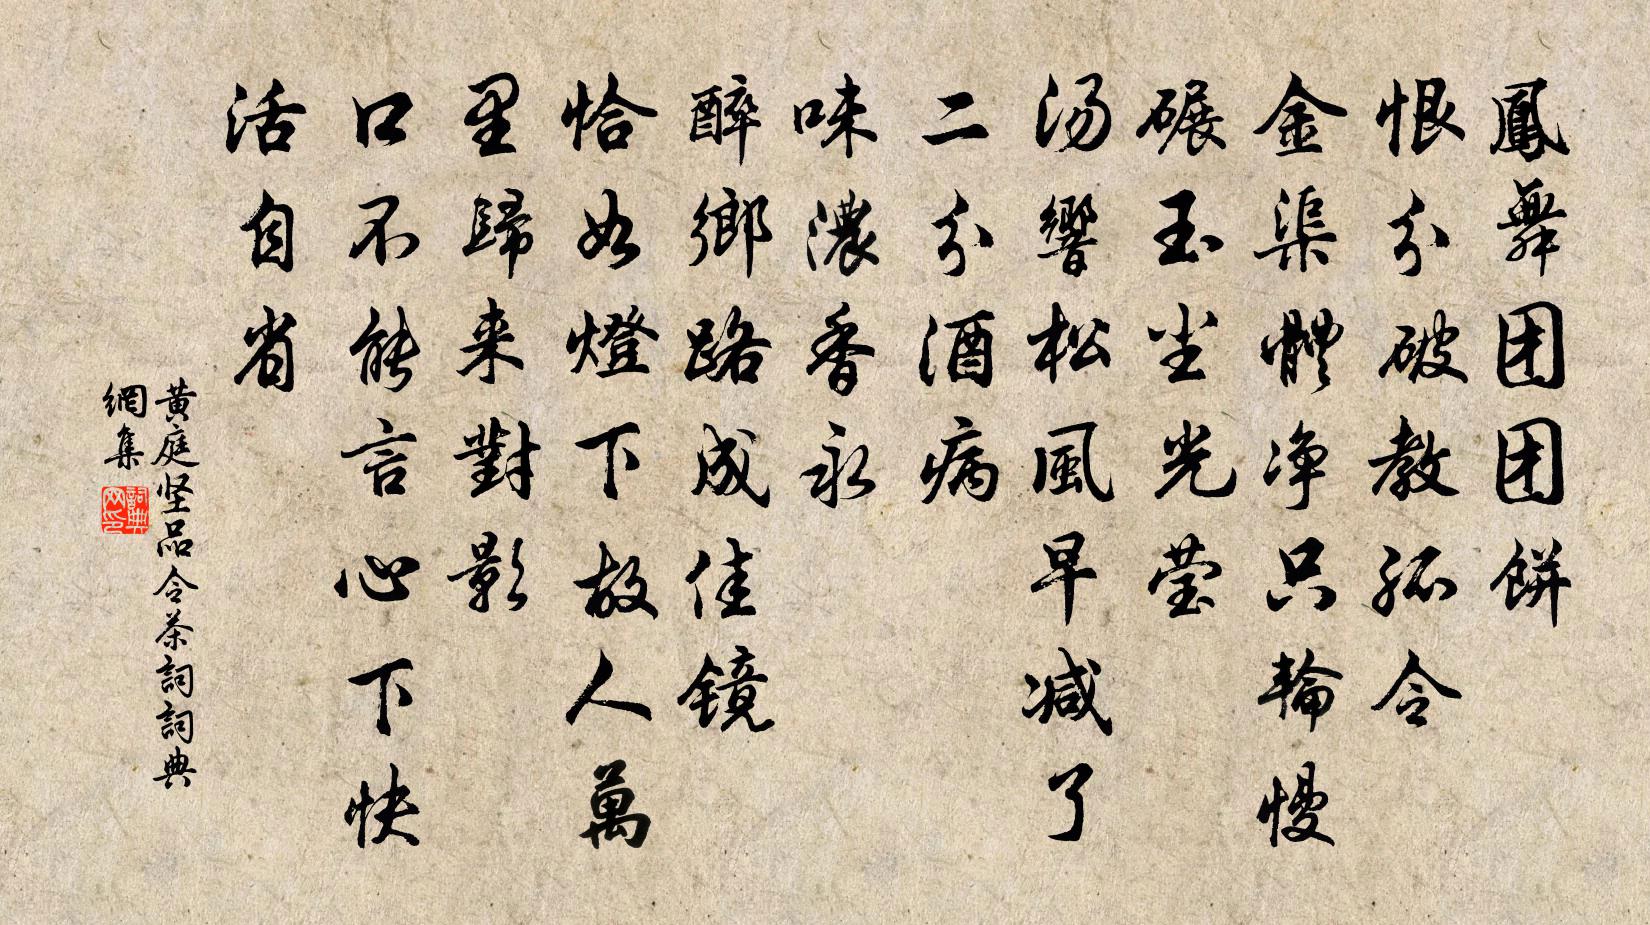 鳳舞团团餅
恨分破教孤令
金渠體净只輪慢
碾玉尘光莹
汤響松風早减了
二分酒病
味濃香永
醉鄉路成佳镜
恰如燈下故人萬
里歸来對影
口不能言心下快
活自省
黄庭坚品令茶詞詞典
網集
詞典
网印